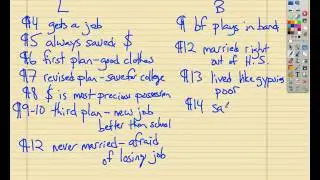 L
B
¶4 gets a job
¶5 always saved $
¶6 first plan-good clothes
¶7 revised plan-save for college
¶8 $ is most precious possession
¶9-10 third plan-new job
better than school
¶12 never married-afraid
of losing job
¶ bf plays in band
¶12 married right
out of H.S.
¶13 lived like gypsies
poor
¶14 sa